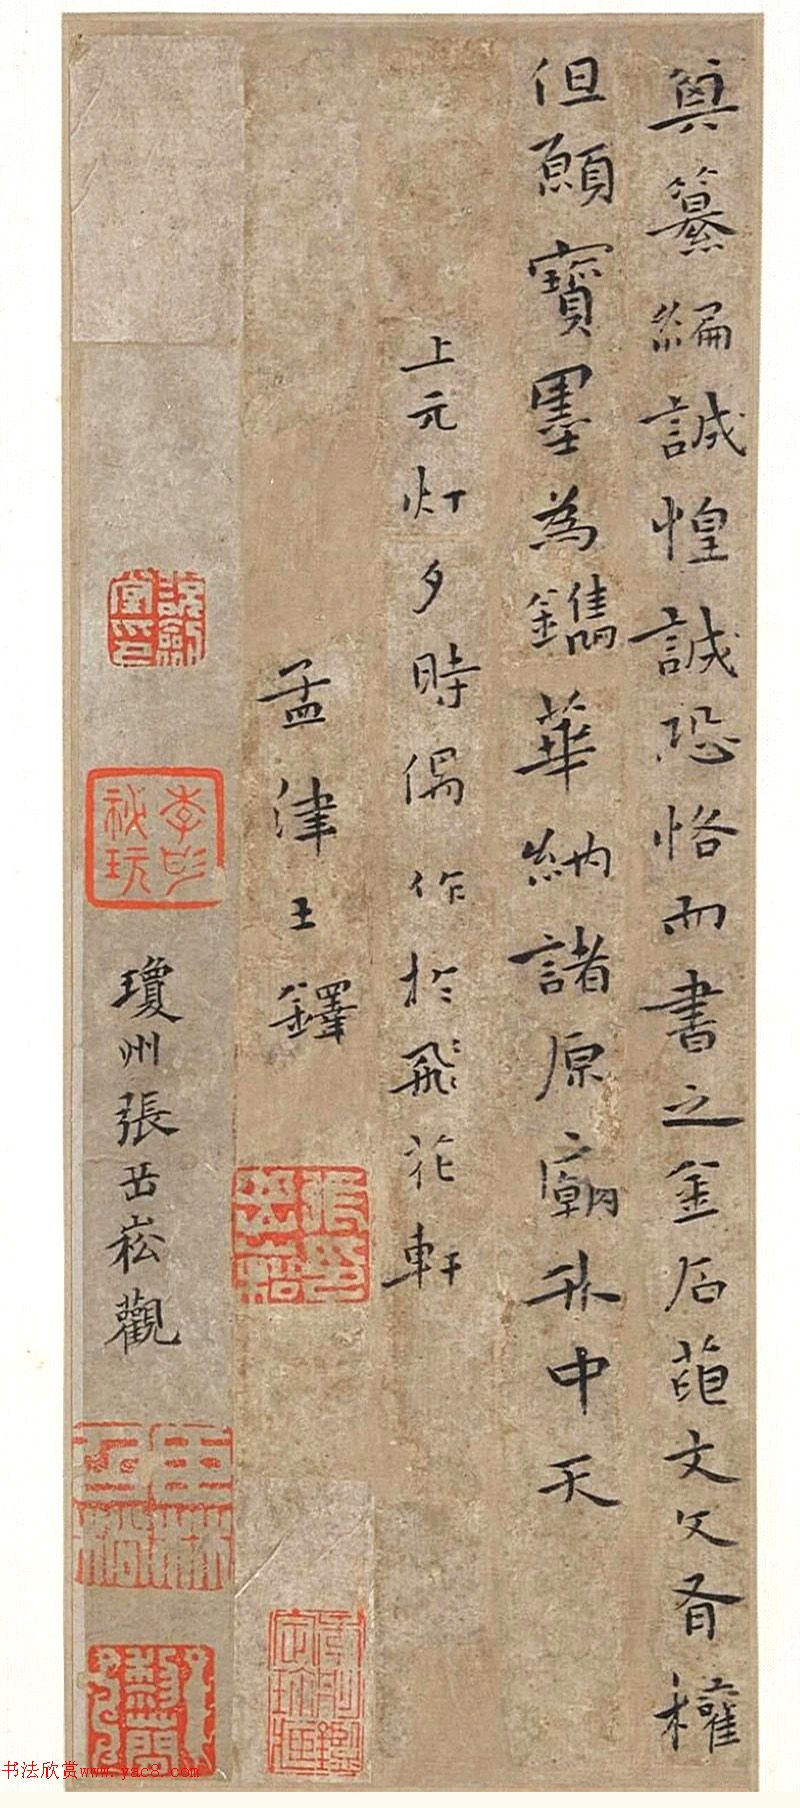 與纂編誠惶誠恐恪而書之金石葩文父胥權
但願寶墨為鐫華納諸原廟炳中天
上元灯夕時偶作於飛花軒
孟津王鐸
瓊州張岳崧觀
李氏祕玩
书法欣赏www.yac8.com